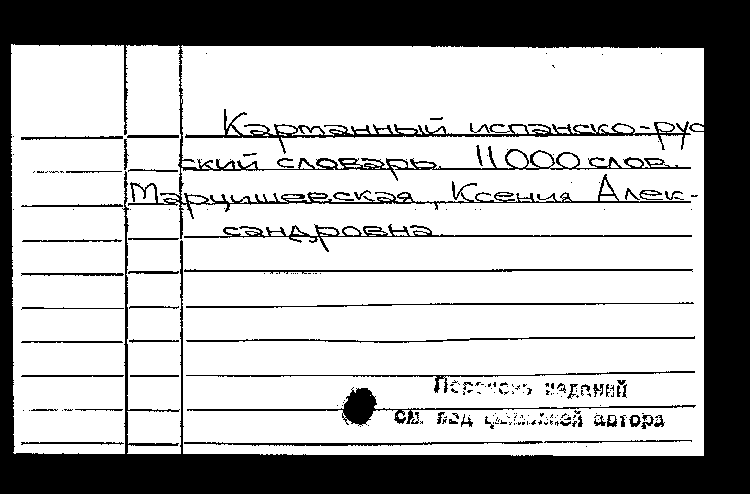 Карманный испанско-рус
ский словарь. 11000 слов.
Марцишевская, Ксения Алек-
сандровна.
Перечень изданий
см. под фамилией автора